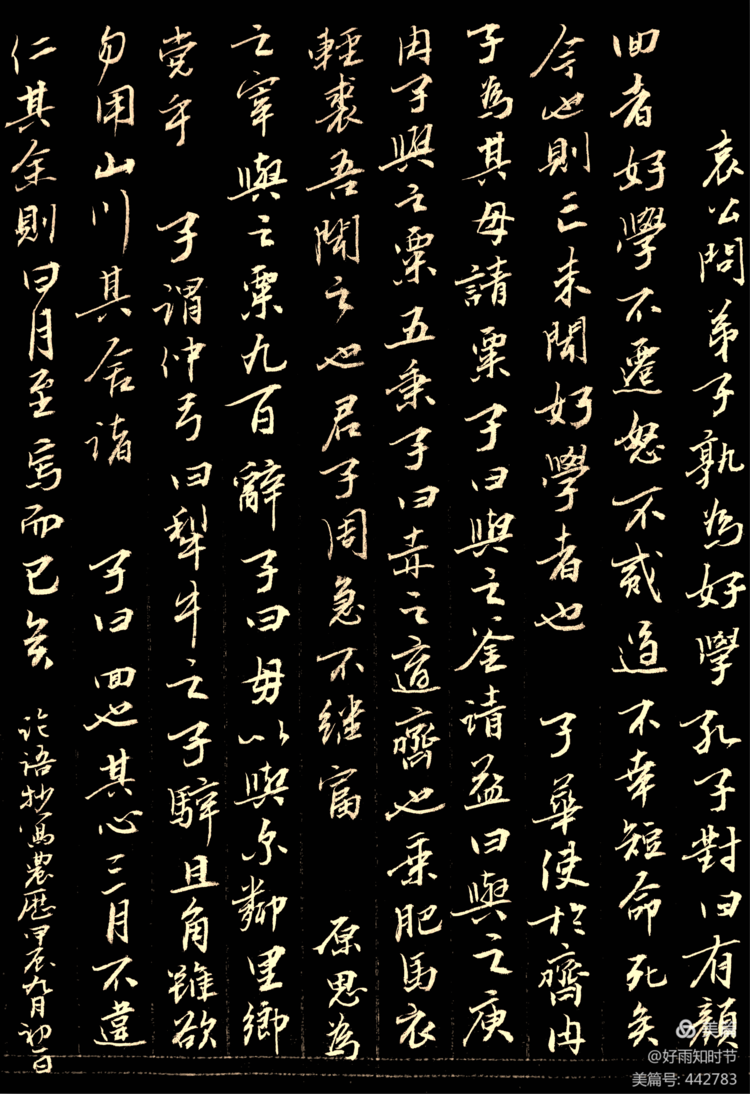 哀公問弟子孰為好學孔子對曰有顔
回者好學不遷怒不貳過不幸短命死矣
今也則亡未聞好學者也 子華使於齊冉
子為其母請粟子曰與之釜請益曰與之庾
冉子與之粟五秉子曰赤之適齊也乗肥馬衣
輕裘吾聞之也君子周急不继富 原思為
之宰與之粟九百辭子曰毋以與尔鄰里鄉
党乎 子謂仲弓曰犂牛之子騂且角雖欲
勿用山川其舍諸 子曰回也其心三月不違
仁其余則日月至焉而已矣 论语抄写農歷甲辰九月初一日
美篇
@好雨知时节
美篇号: 442783